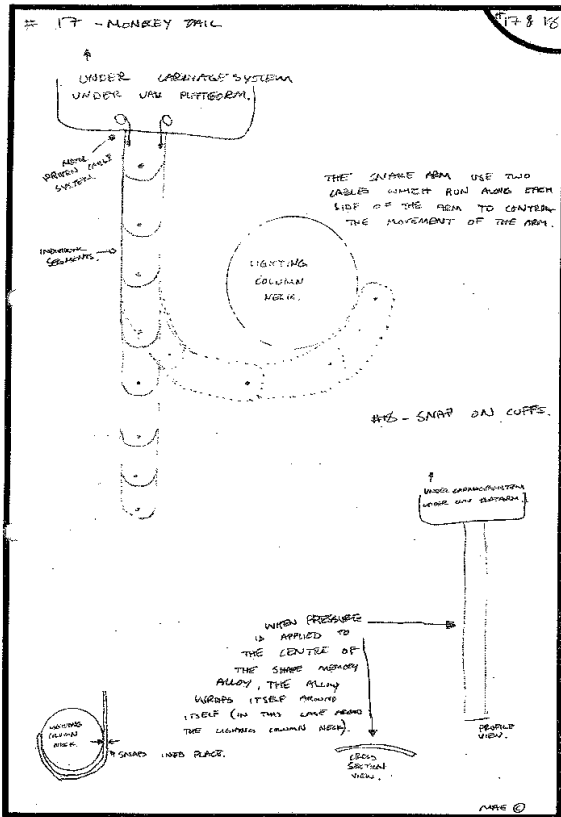 # 17 - MONKEY TAIL
#17 & 18
UNDER CARRIAGE SYSTEM
UNDER UAV PLATFORM.
MOTOR
DRIVEN CABLE
SYSTEM.
THE SNAKE ARM USE TWO
CABLES WHICH RUN ALONG EACH
SIDE OF THE ARM TO CONTROL
THE MOVEMENT OF THE ARM.
INDIVIDUAL
SEGMENTS.
LIGHTING
COLUMN
NECK.
#18 - SNAP ON CUFFS.
UNDER CARRIAGE SYSTEM
UNDER UAV PLATFORM.
WHEN PRESSURE
IS APPLIED TO
THE CENTRE OF
THE SHAPE MEMORY
ALLOY, THE ALLOY
WRAPS ITSELF AROUND
ITSELF (IN THIS CASE AROUND
THE LIGHTING COLUMN NECK).
LIGHTING
COLUMN
NECK.
SNAPS INTO PLACE.
CROSS
SECTION
VIEW.
PROFILE
VIEW.
MAE ©